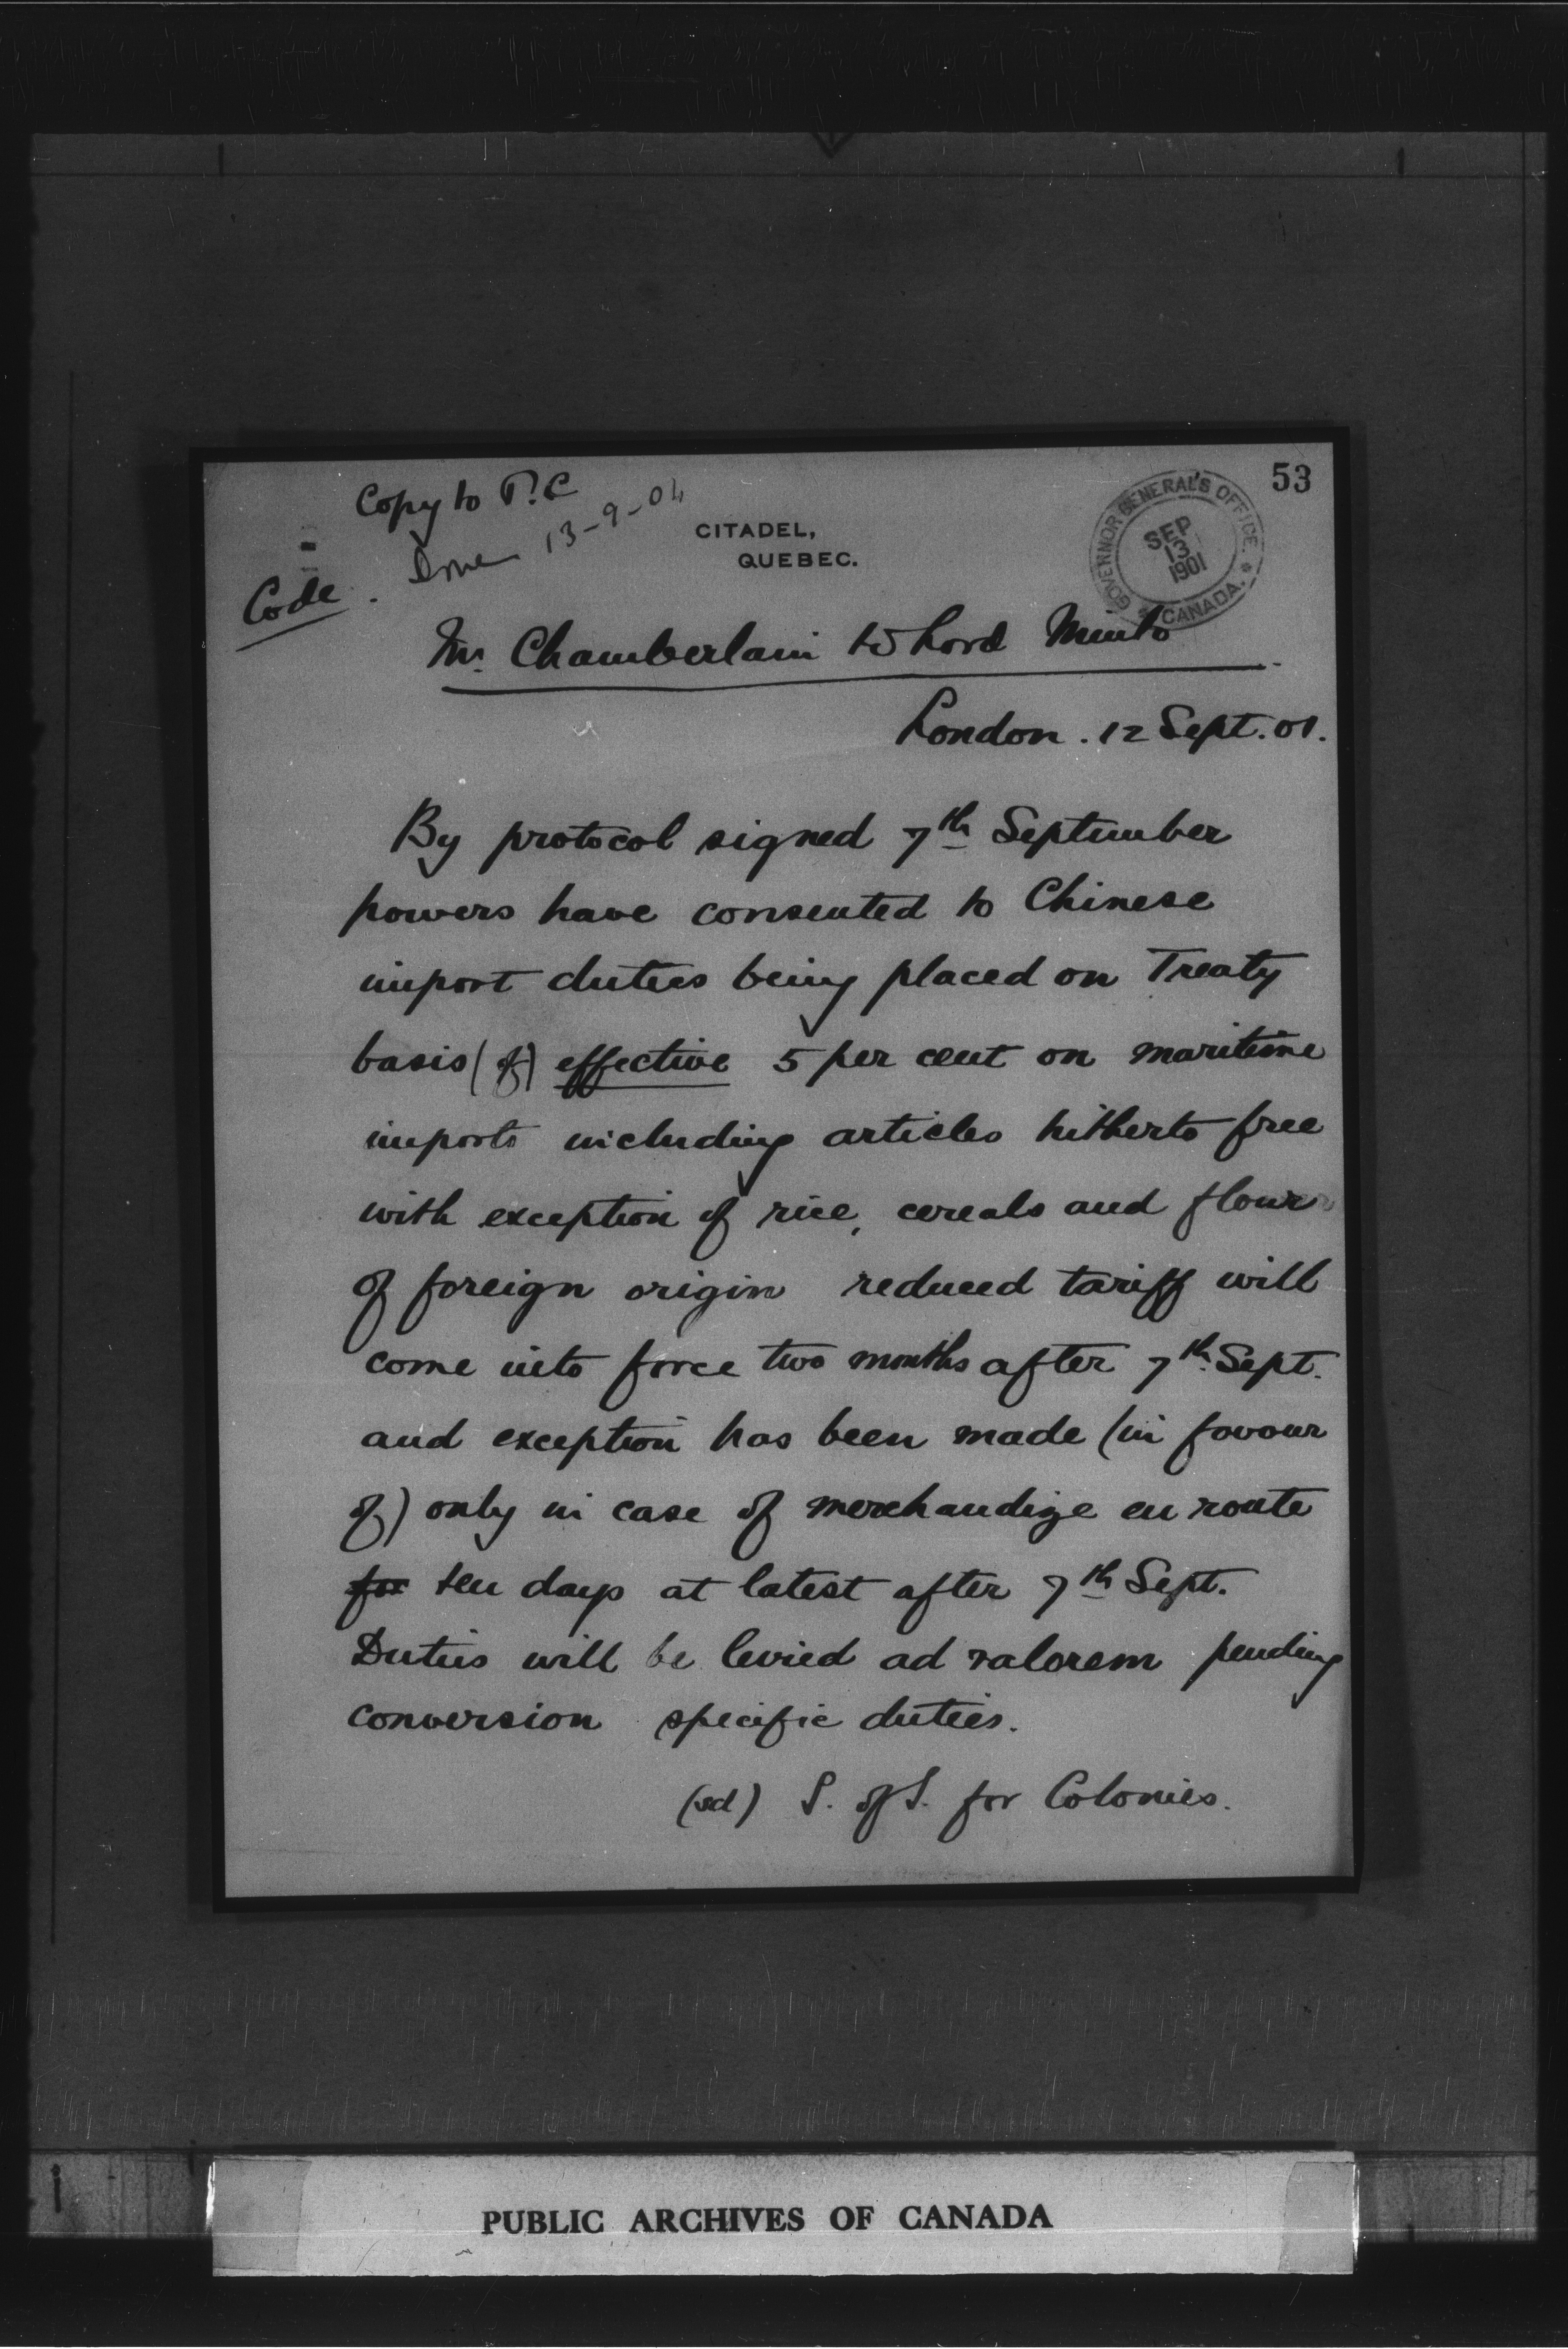 53
Copy to P.C
Done 13-9-01
CITADEL,
QUEBEC.
GOVERNOR GENERAL'S OFFICE. * CANADA. *
SEP
13
1901
Code.
Mr. Chamberlain to Lord Minto
London. 12 Sept. 01.
By protocol signed 7th September
powers have consented to Chinese
import duties being placed on Treaty
basis (of) effective 5 per cent on maritime
imports including articles hitherto free
with exception of rice, cereals and flour
of foreign origin reduced tariff will
come into force two months after 7th Sept.
and exception has been made (in favour
of) only in case of merchandize en route
for ten days at latest after 7th Sept.
Duties will be levied ad valorem pending
conversion specific duties.
(sd) S. of S. for Colonies.
PUBLIC ARCHIVES OF CANADA